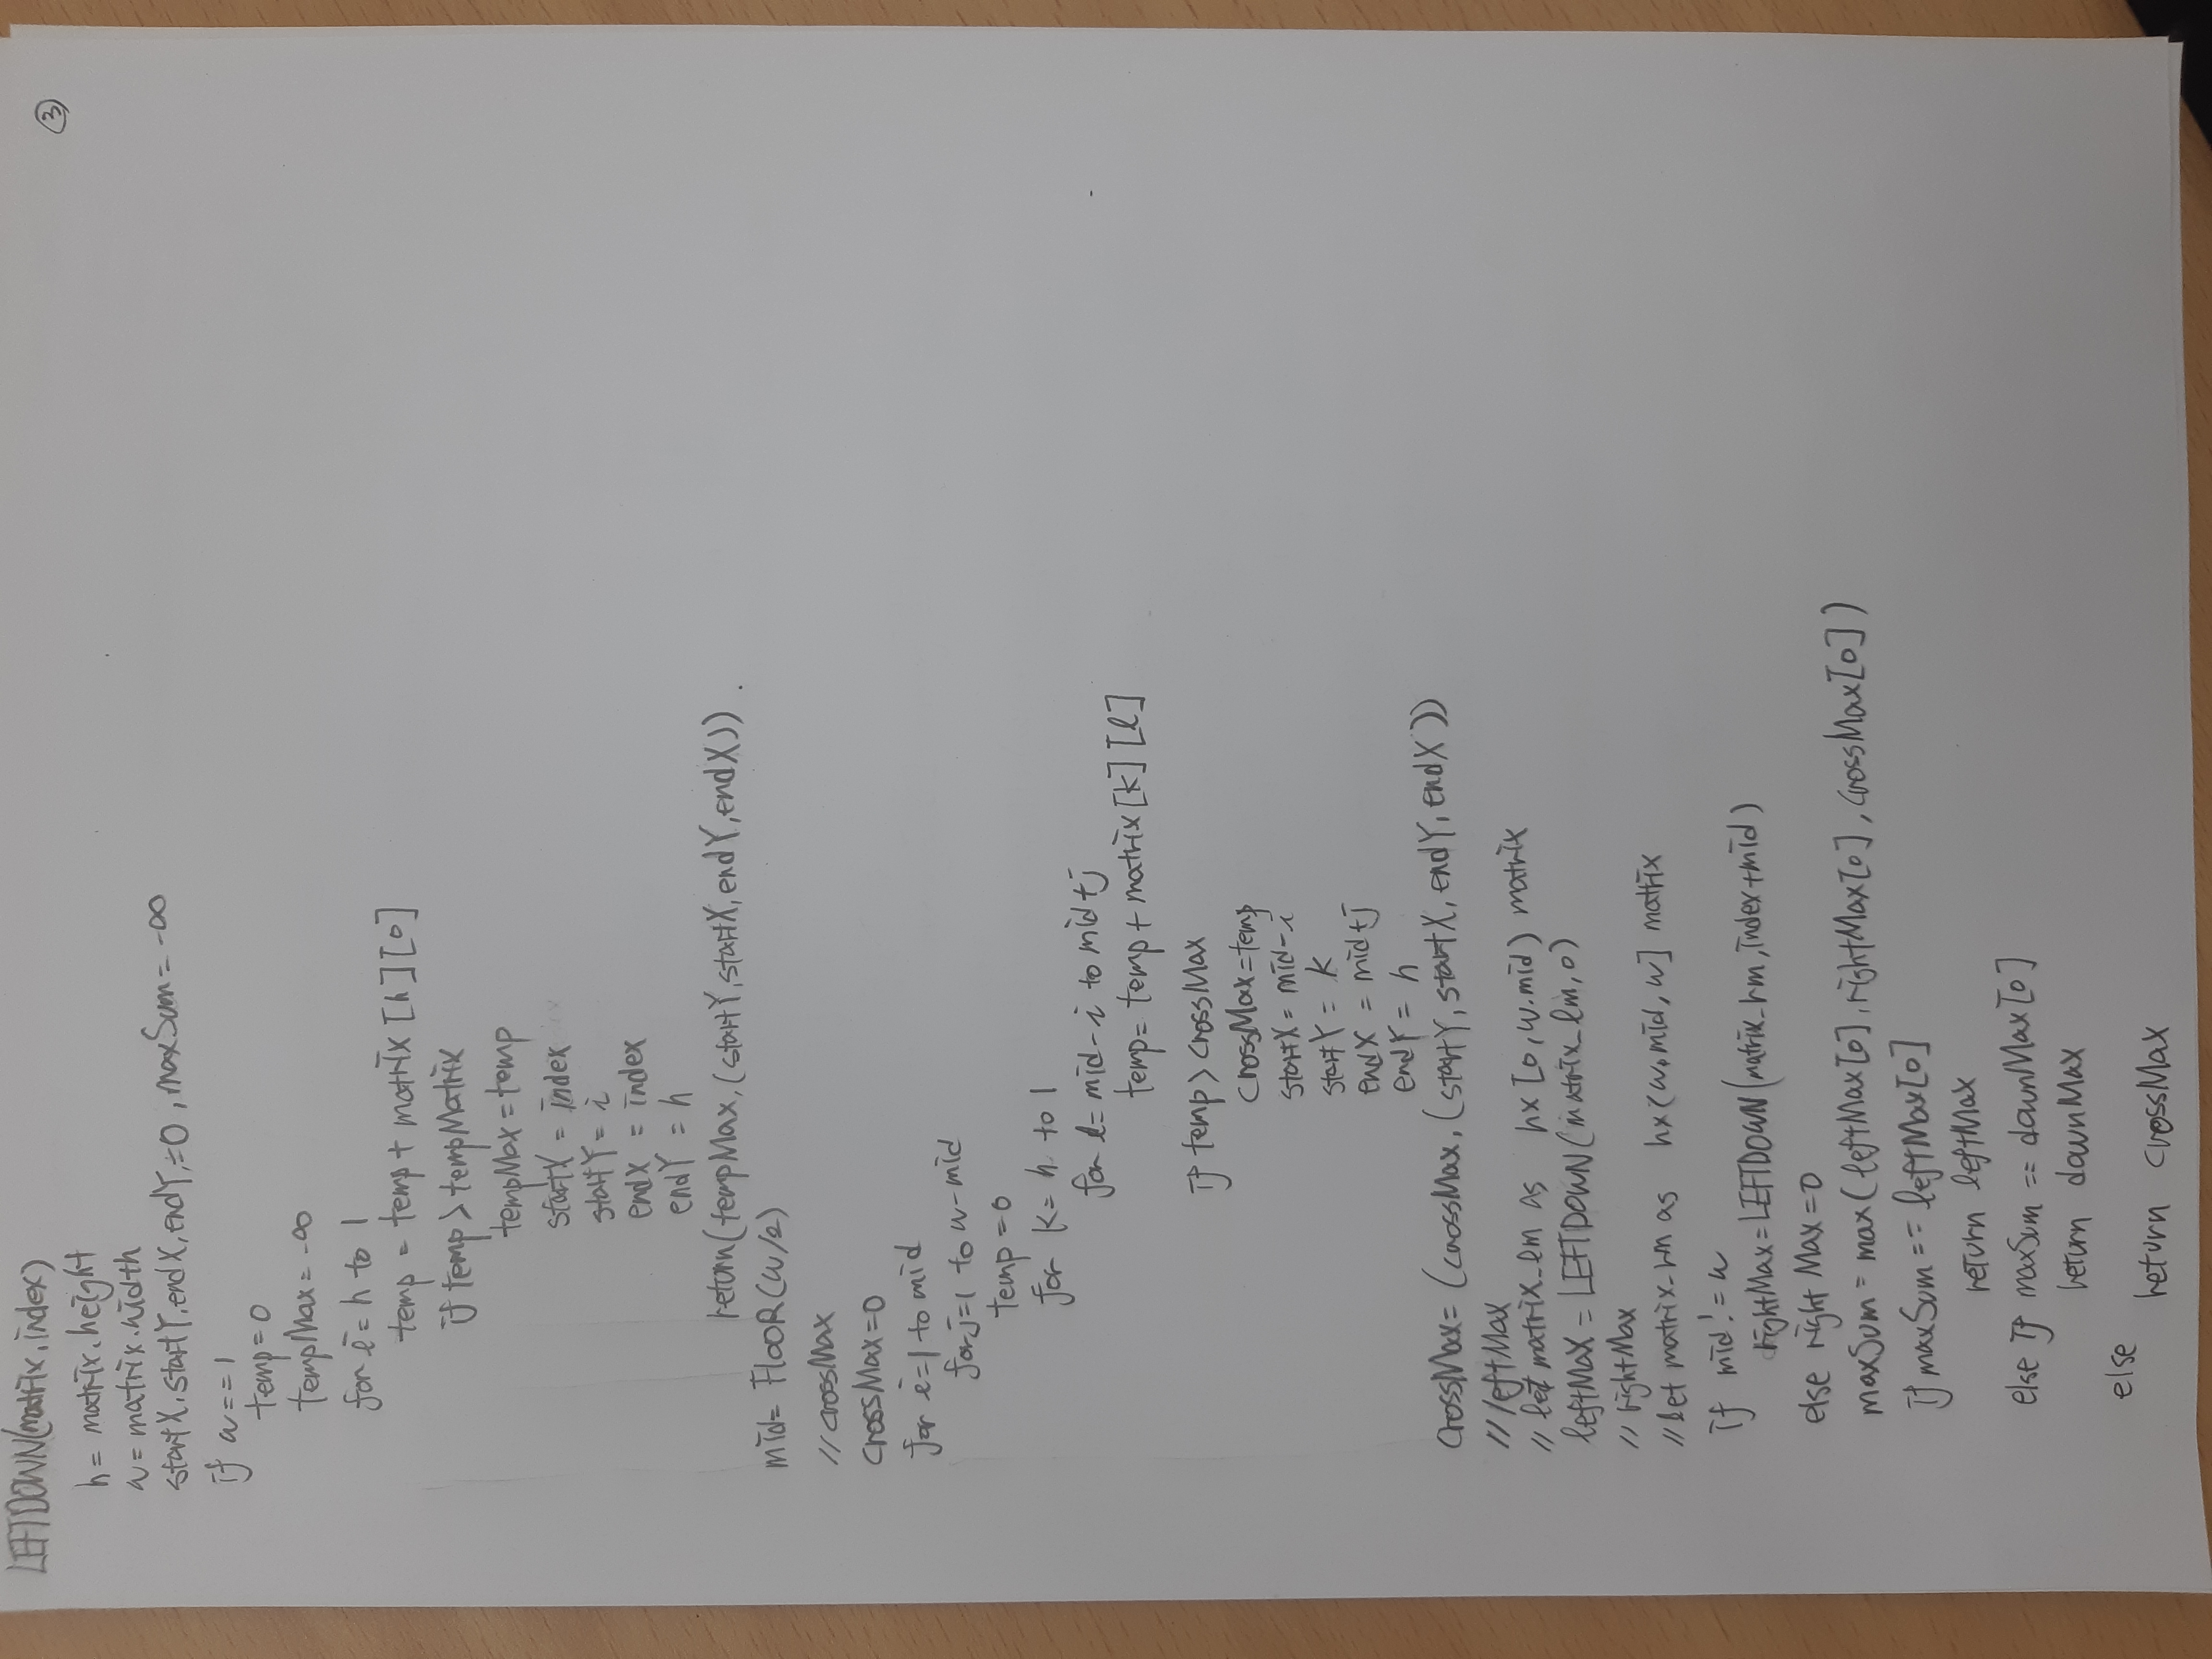 LEFTDOWN(matrix, index)
③
h = matrix.height
w = matrix.width
startX, startY, endX, endY, =0, maxSum = -∞
if w == 1
temp = 0
tempMax = -∞
for i = h to 1
temp = temp + matrix [h][0]
if temp > tempMatrix
tempMax = temp
startX = index
startY = i
endX = index
endY = h
return(tempMax, (startY, startX, endY, endX)).
mid = FLOOR(w/2)
// crossMax
crossMax=0
for i=1 to mid
for j=1 to w-mid
temp = 0
for k = h to 1
for l = mid-i to mid+j
temp = temp + matrix [k] [l]
if temp > crossMax
crossMax=temp
startX = mid-i
startY = k
endX = mid+j
endY = h
crossMax = (crossMax, (startY, startX, endY, endX))
// leftMax
// let matrix_lm as h×[0, w.mid) matrix
leftMax = LEFTDOWN(matrix_lm, 0)
// rightMax
// let matrix_rm as h×(w.mid, w] matrix
if mid != w
rightMax = LEFTDOWN(matrix_rm, index+mid)
else rightMax = 0
maxSum = max(leftMax[0], rightMax[0], crossMax[0])
if maxSum == leftMax[0]
return leftMax
else if maxSum == downMax[0]
return downMax
else
return crossMax